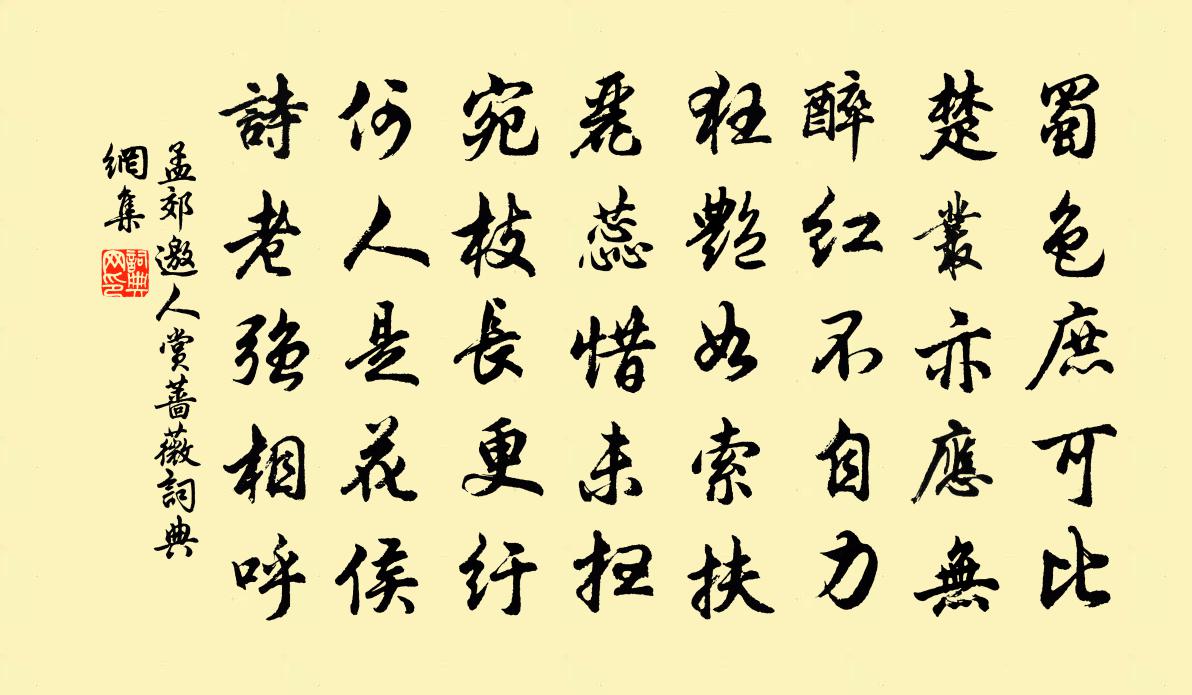 蜀色庶可比
楚叢亦應無
醉红不自力
狂艷如索扶
麗蕊惜未扫
宛枝長更纡
何人是花侯
詩老强相呼
孟郊邀人赏蔷薇詞典
網集
詞典
网印